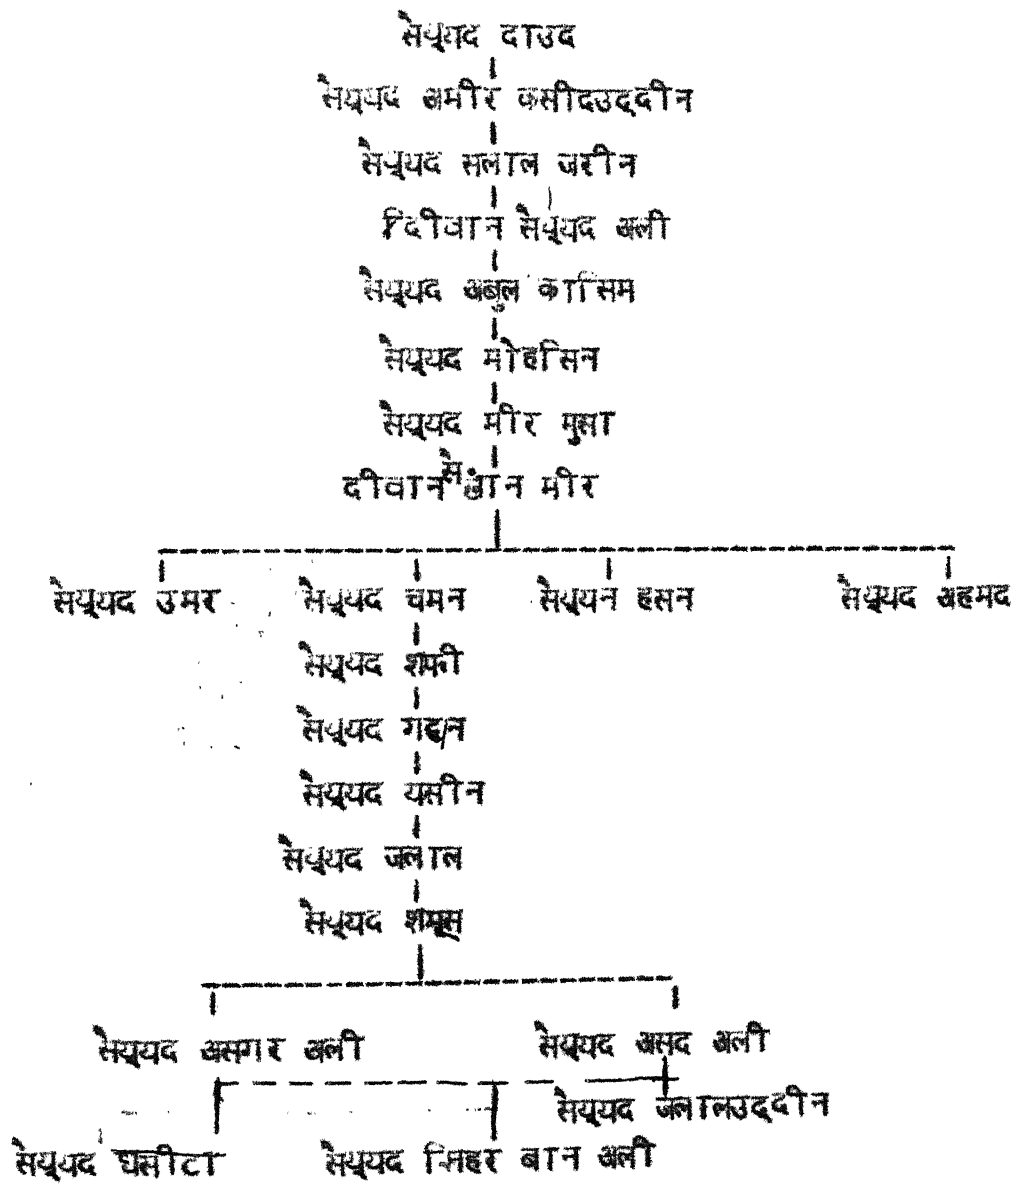 सैय्यद दाउद
सैय्यद अमीर कसीदउद्दीन
सैय्यद सलाल जरीन
दिीवान सैय्यद अली
सैय्यद अबुल कासिम
सैय्यद मोहसिन
सैय्यद मीर मुसा
दीवान सै खान मीर
सैय्यद उमर सैय्यद चमन सैय्यन हसन सैय्यद अहमद
सैय्यद शफी
सैय्यद
सैय्यद यसीन
सैय्यद जलाल
सैय्यद शम्स
सैय्यद असगर अली सैय्यद असद अली
सैय्यद जलालउद्दीन
सैय्यद घसीटा सैय्यद मिहर बान अली